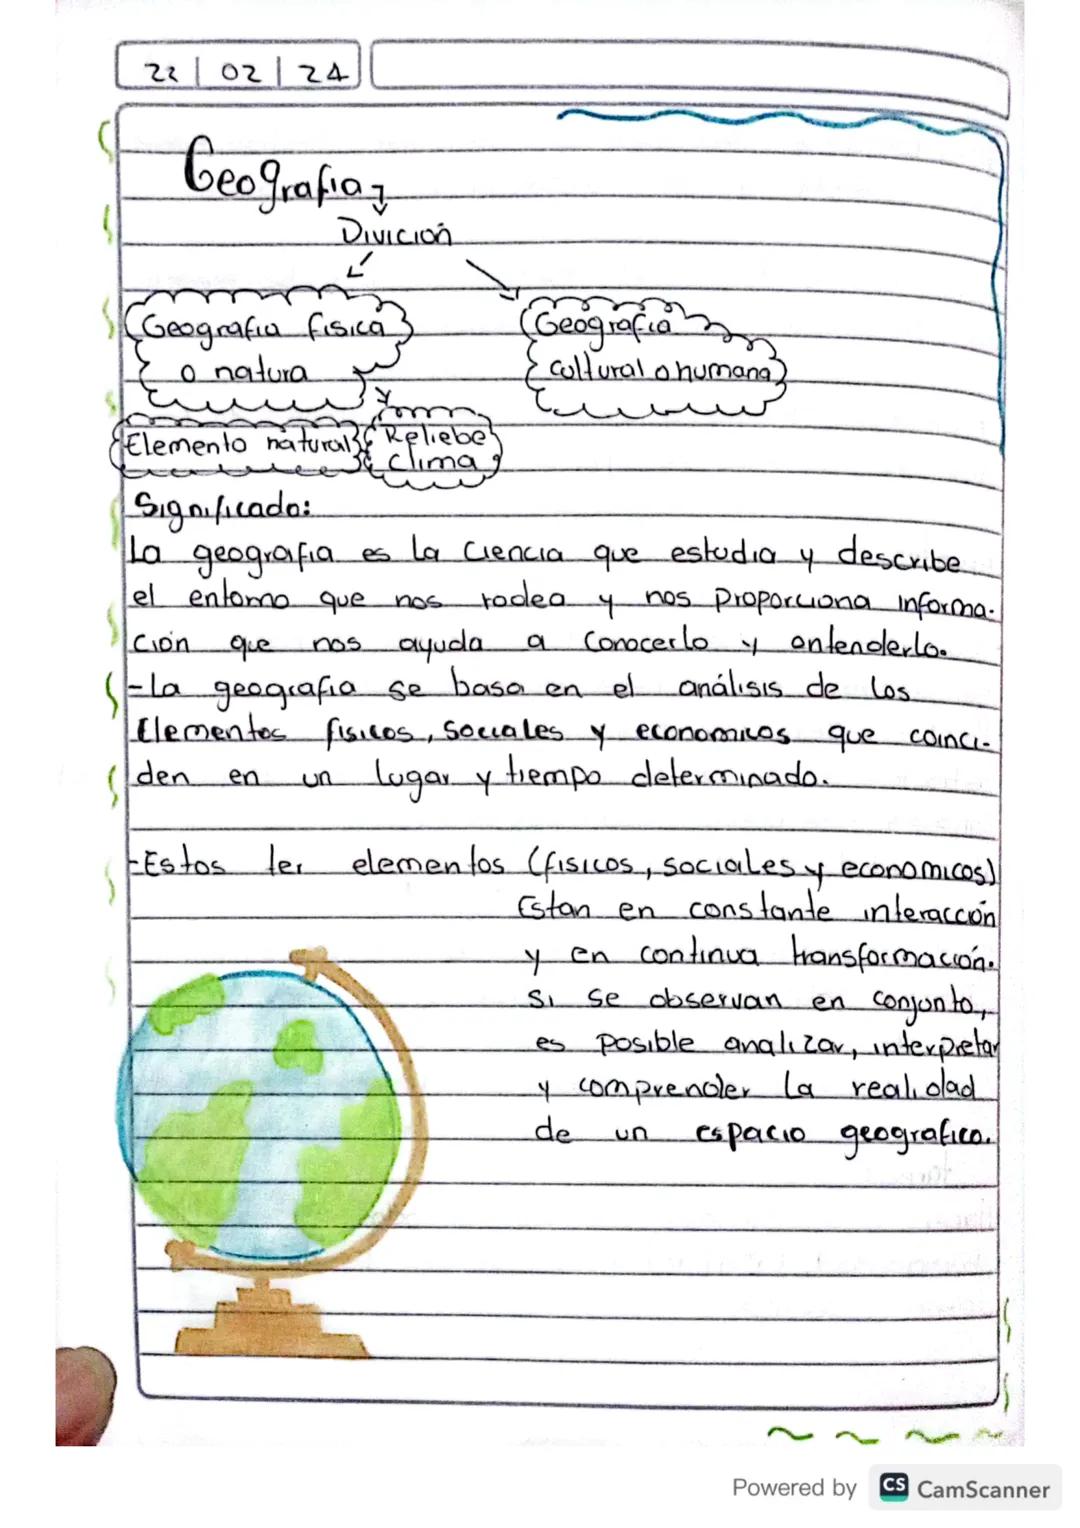 22 | 02 | 24
Geografia
Divición
Geografia fisica
o natura
Geografia
cultural o humana
Elemento natural
Reliebe
clima
Significado:
La geografia es la ciencia que estudia y describe
el entorno que nos rodea y nos proporciona informa-
ción que nos ayuda a conocerlo y entenderlo.
-La geografia se basa en el análisis de los
Elementos fisicos, sociales y economicos que coinci-
den en un lugar y tiempo determinado.
-Estos ter elementos (fisicos, sociales y economicos)
Estan en constante interacción
y en continua transformación.
Si se observan en conjunto,
es posible analizar, interpretar
y comprender la realidad
de un espacio geografico.
Powered by CS CamScanner